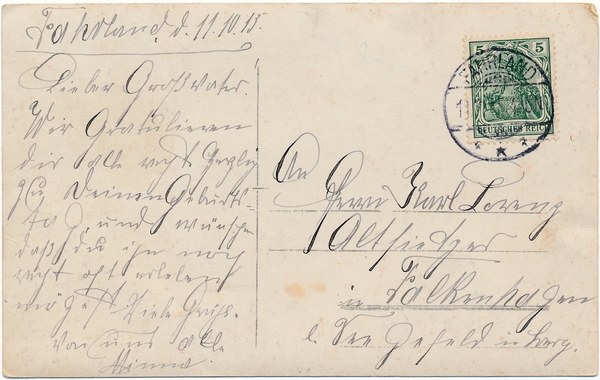 Fahrland, d. 11.10.15.
Lieber Großvater.
Wir Gratulieren
dir alle recht herzlich
zu Deinem Geburts-
tag, und wünschen
daß du ihn noch
recht oft erleben
mögest Viele Grüße
von uns alle
Minna.
An
Herrn Karl Lorenz
Altsitzer
in Falkenhagen
b. Seegefeld
5 5
DEUTSCHES REICH
FAHRLAND